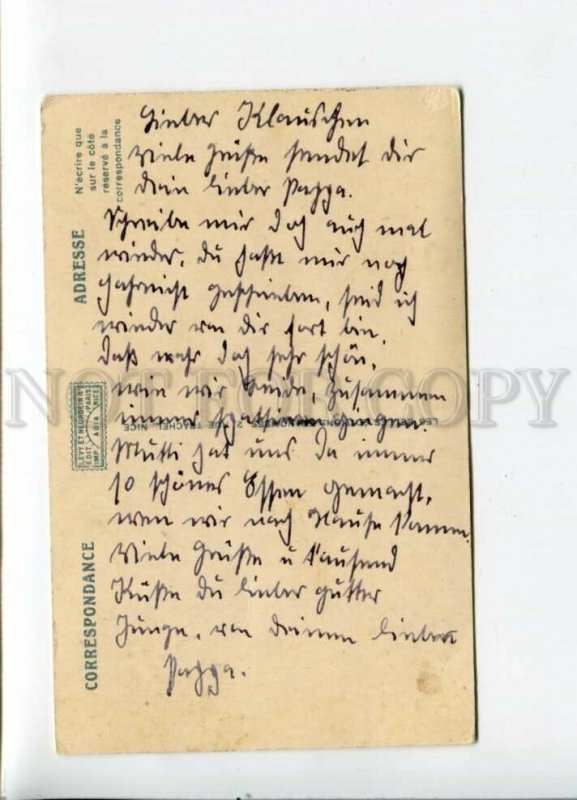 Lieber Klauschen
viele Grüße sendet dir
dein lieber Pappa.
Schreibe mir doch auch mal
wieder, du hast mir noch
gahrnicht geschrieben, seid ich
wieder von dir fort bin.
Daß wahr doch sehr schön,
wie wir beide, zusammen
immer spatziren gingen.
Mutti hat uns da immer
so schönes Essen gemacht,
wen wir nach Hause kamen.
Viele Grüße u tausend
Küße du lieber gutter
Junge, von deinem lieben
Pappa.
N'écrire que
sur le côté
réservé à la
correspondance
ADRESSE
LEVY ET NEURDEIN RIS
PARIS
NICE
EDIT.
IMP.
CORRESPONDANCE
NOT FOR COPY